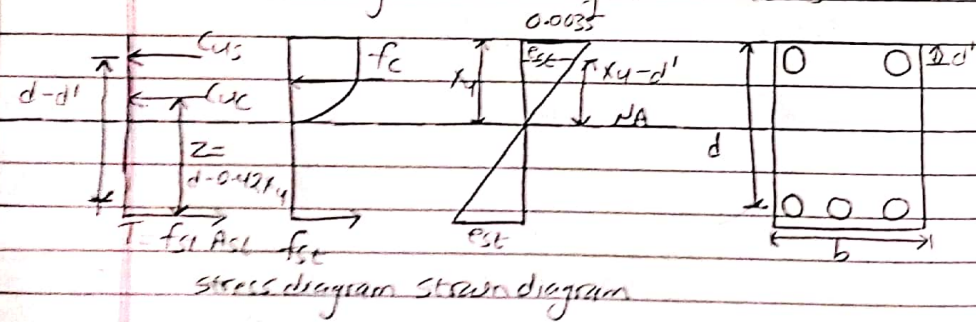 0.0035
Cus
fc
xu
est
xu-d'
d'
d-d'
Cuc
NA
Z=
d-0.42xu
d
T= fst Ast
fst
est
b
stress diagram strain diagram